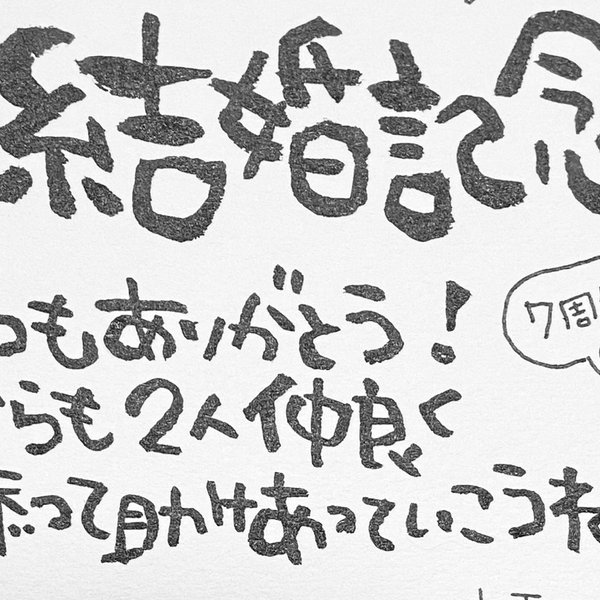 結婚記念
つもありがとう!
7周
らも2人仲良く
添って助けあっていこうね